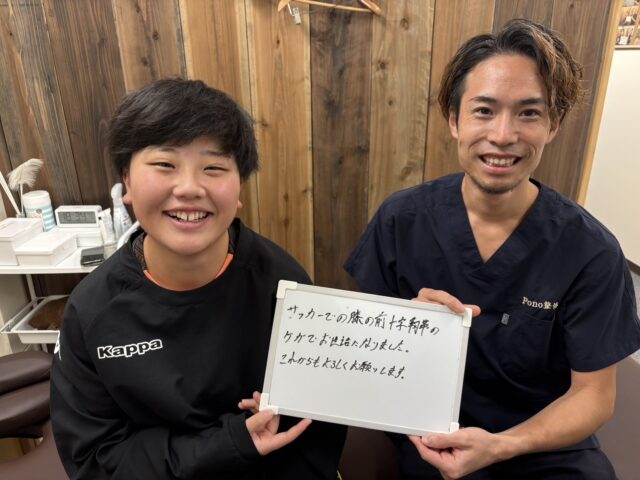 Kappa
Pono整
サッカーでの膝の前十字靭帯の
ケガでお世話になりました。
これからもよろしくお願いします。